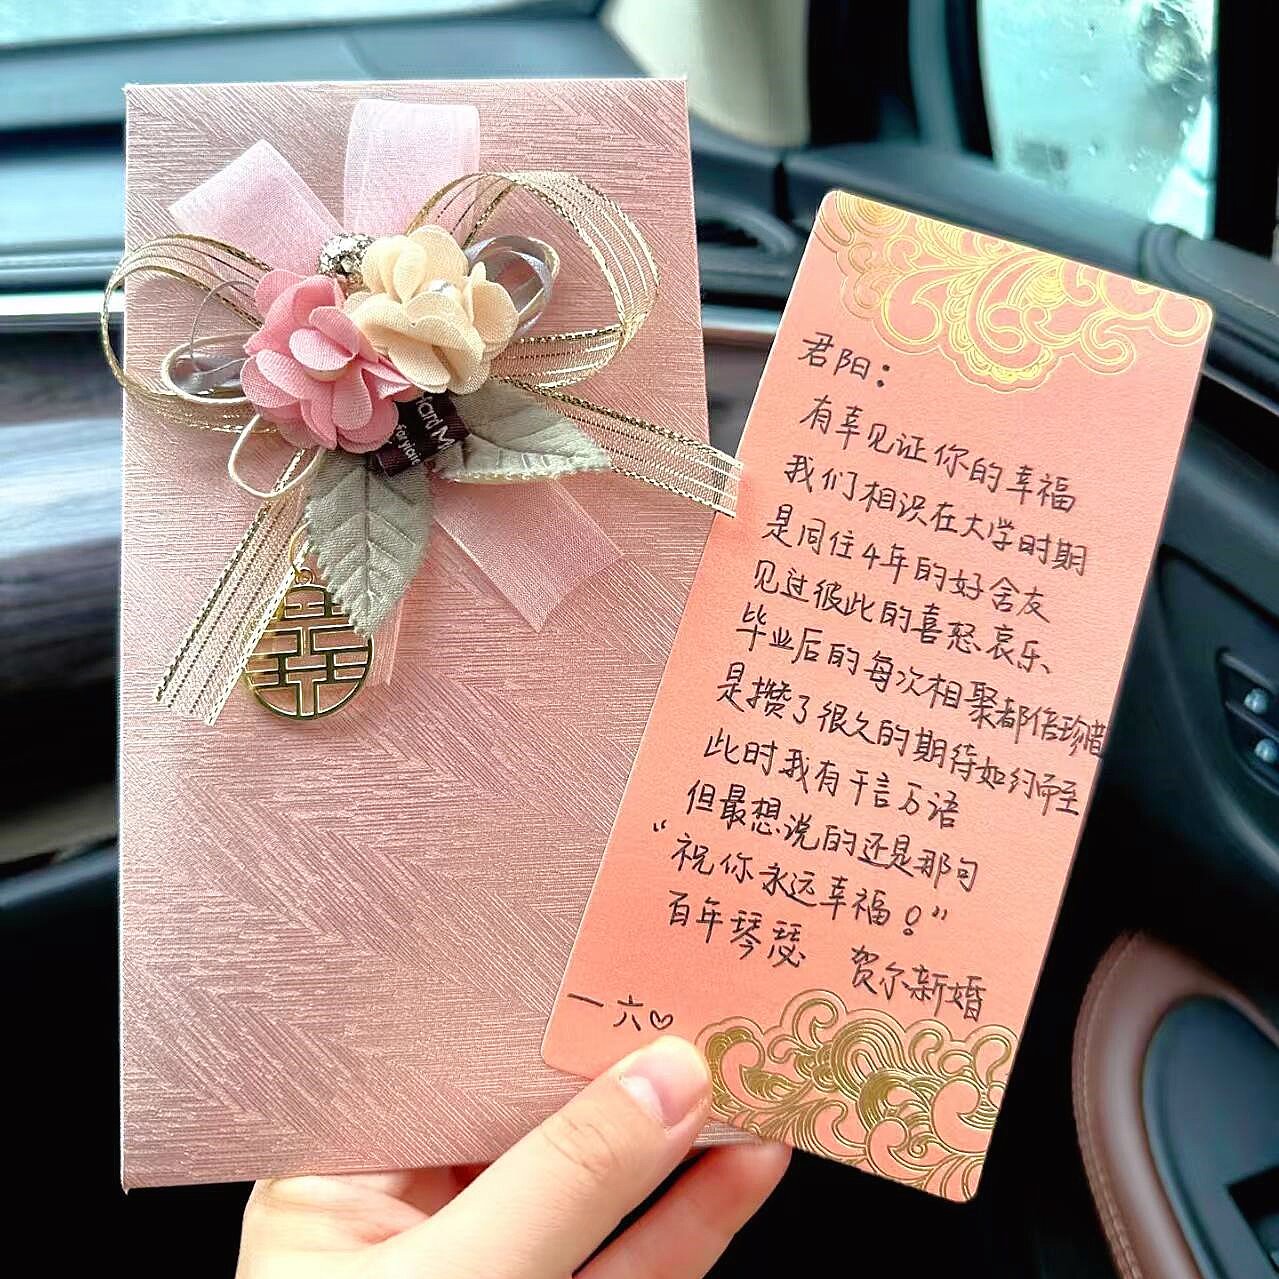 君阳：
有幸见证你的幸福
我们相识在大学时期
是同住4年的好舍友
见过彼此的喜怒哀乐、
毕业后的每次相聚都倍珍惜
是攒了很久的期待如约而至
此时我有千言万语
但最想说的还是那句
“祝你永远幸福！”
百年琴瑟 贺尔新婚
一六♡